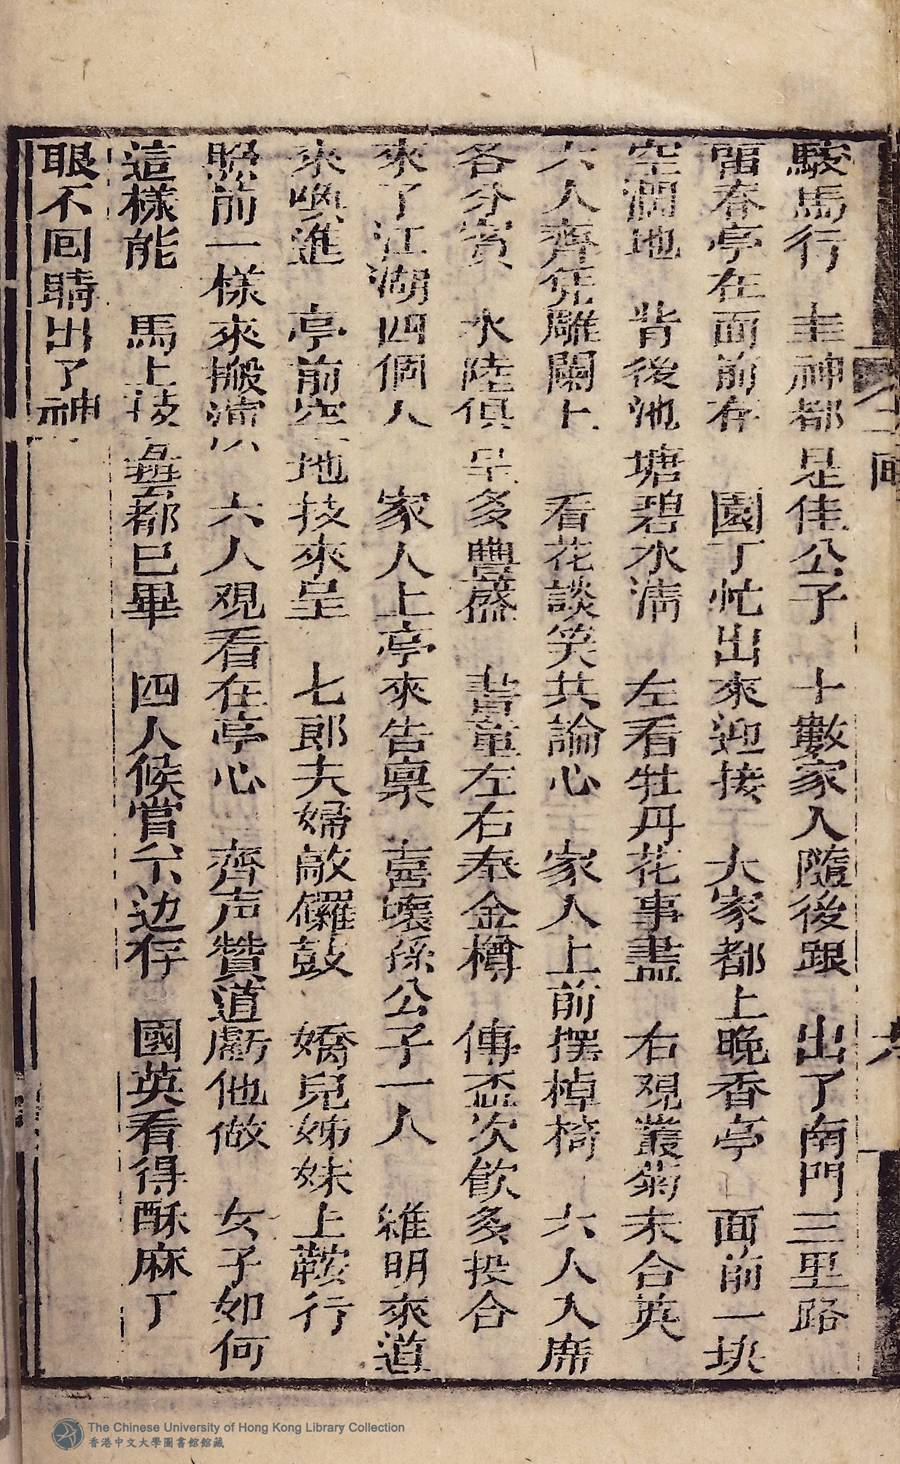 駿馬行　圭神都是佳公子　十數家人隨後跟　出了南門三里路
畱春亭在面前存　園丁忙出來迎接　大家都上晚香亭　面前一块
空濶地　背後池塘碧水清　左看牡丹花事盡　右观叢菊未含英
六人齊凭雕闌上　看花談笑共論心　家人上前摆棹椅　六人入席
各分賓　水陸俱呈多豐盛　書童左右奉金樽　傳盃次飮多投合
來了江湖四個人　家人上亭來告禀　喜壞孫公子一人　維明來道
來喚進　亭前空地技來呈　七郎夫婦敲鑼鼓　嬌兒姊妹上鞍行
照前一樣來搬演　六人观看在亭心　齊声贊道虧他做　女子如何
這樣能　馬上技藝都已畢　四人候賞台边存　國英看得酥麻了
眼不回睛出了神
The Chinese University of Hong Kong Library Collection
香港中文大學圖書館館藏